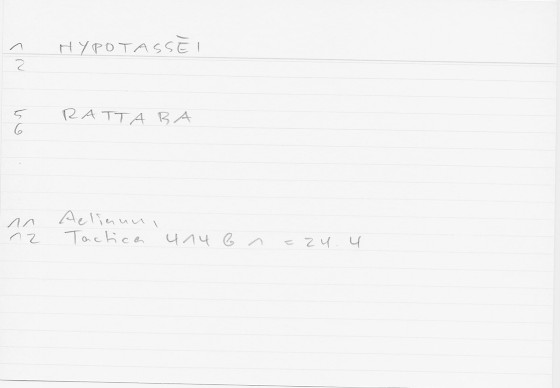 1 HYPOTASSĒI
2
5 RATTABA
6
11 Aelianus,
12 Tactica 414 B 1 = 24.4